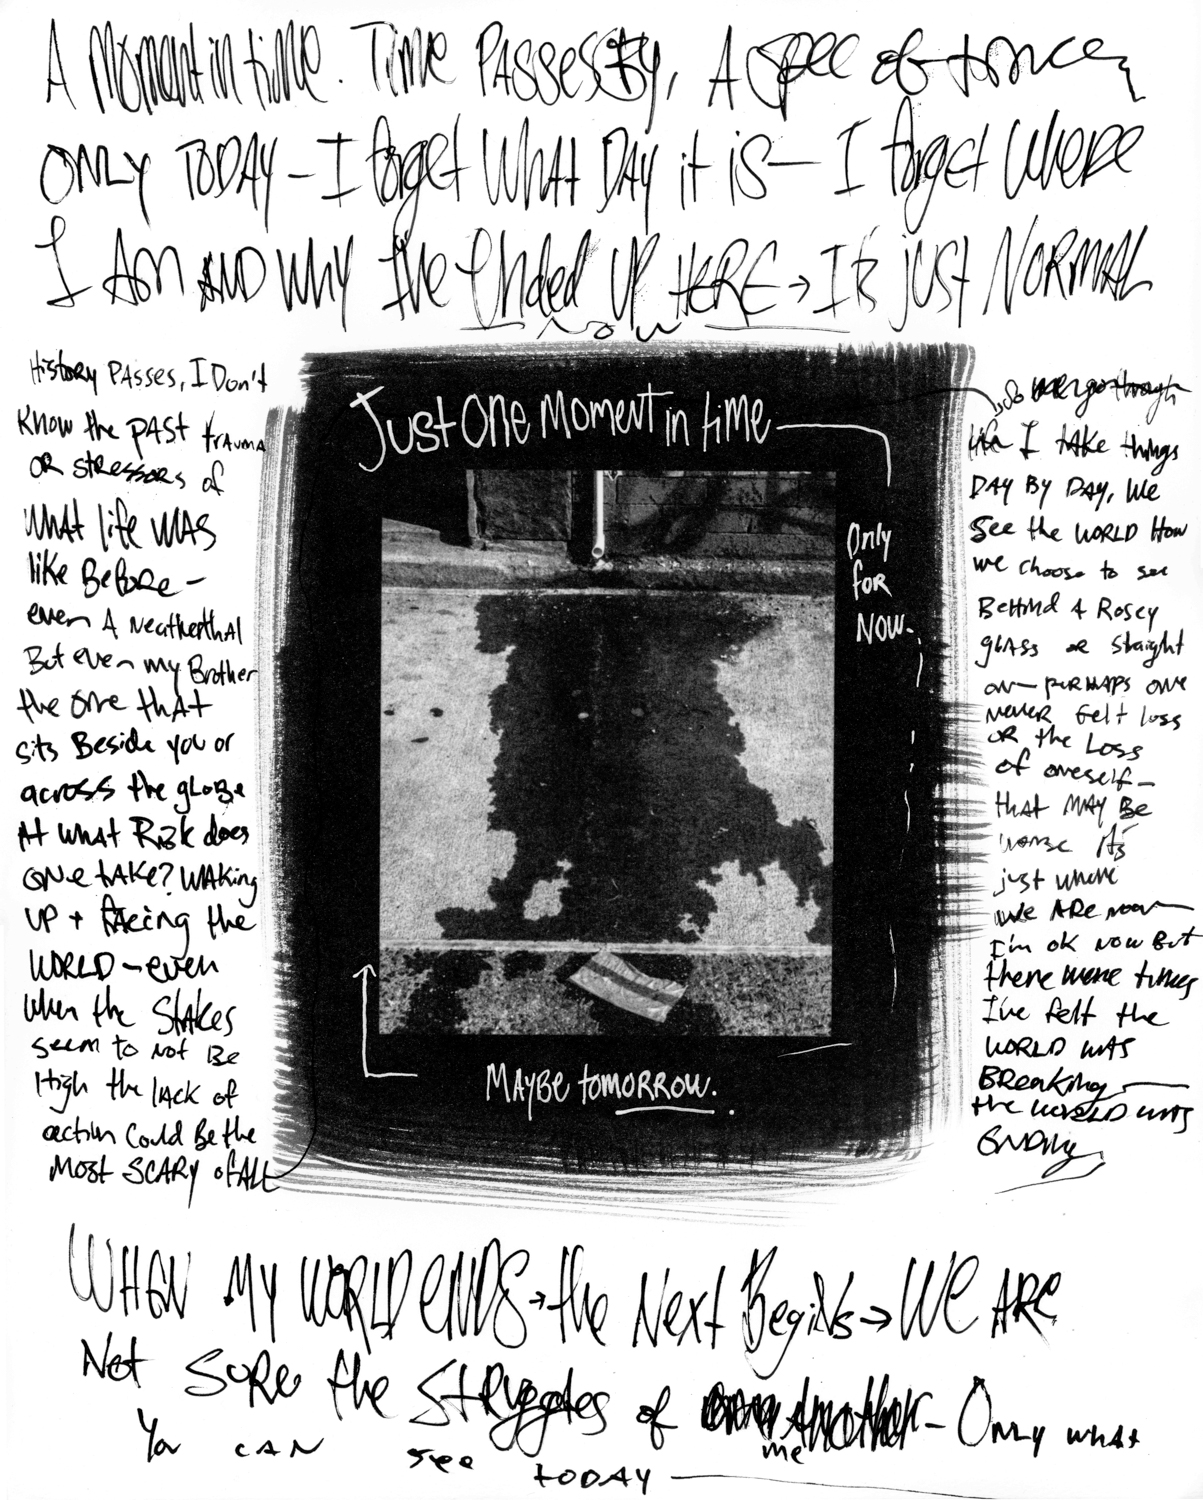 A Moment in time. Time Passes By, A Spec of
ONLY TODAY – I forget What DAY it is – I forget Where
I Am AND Why I've Ended UP HERE → It's just NORMAL
Now
History PAsses, I Don't
Know the PAST trAumA
OR stressors of
What life WAS
like Before –
even A Neatherthal
But even my Brother
the one that
sits Beside you or
across the globe
At what Risk does
one take? WAking
UP + facing the
WORLD – even
When the Stakes
seem to not Be
High the lack of
action Could Be the
Most SCARY of All
Just One Moment in time
Only
for
Now.
Maybe tomorrow.
So we go through
life I take things
DAY BY DAY, We
See the WORLD How
we choose to see
Behind A Rosey
glass or straight
on – perhaps one
never felt loss
OR the Loss
of oneself –
that MAY Be
worse It's
just where
we ARE now –
I'm ok now But
there were times
I've felt the
WORLD WAS
Breaking –
the WORLD was
Ending
WHEN MY WORLD ENDS → the Next Begins → WE ARE
Not Sure the Struggles of another – Only what
You CAN see me
TODAY –